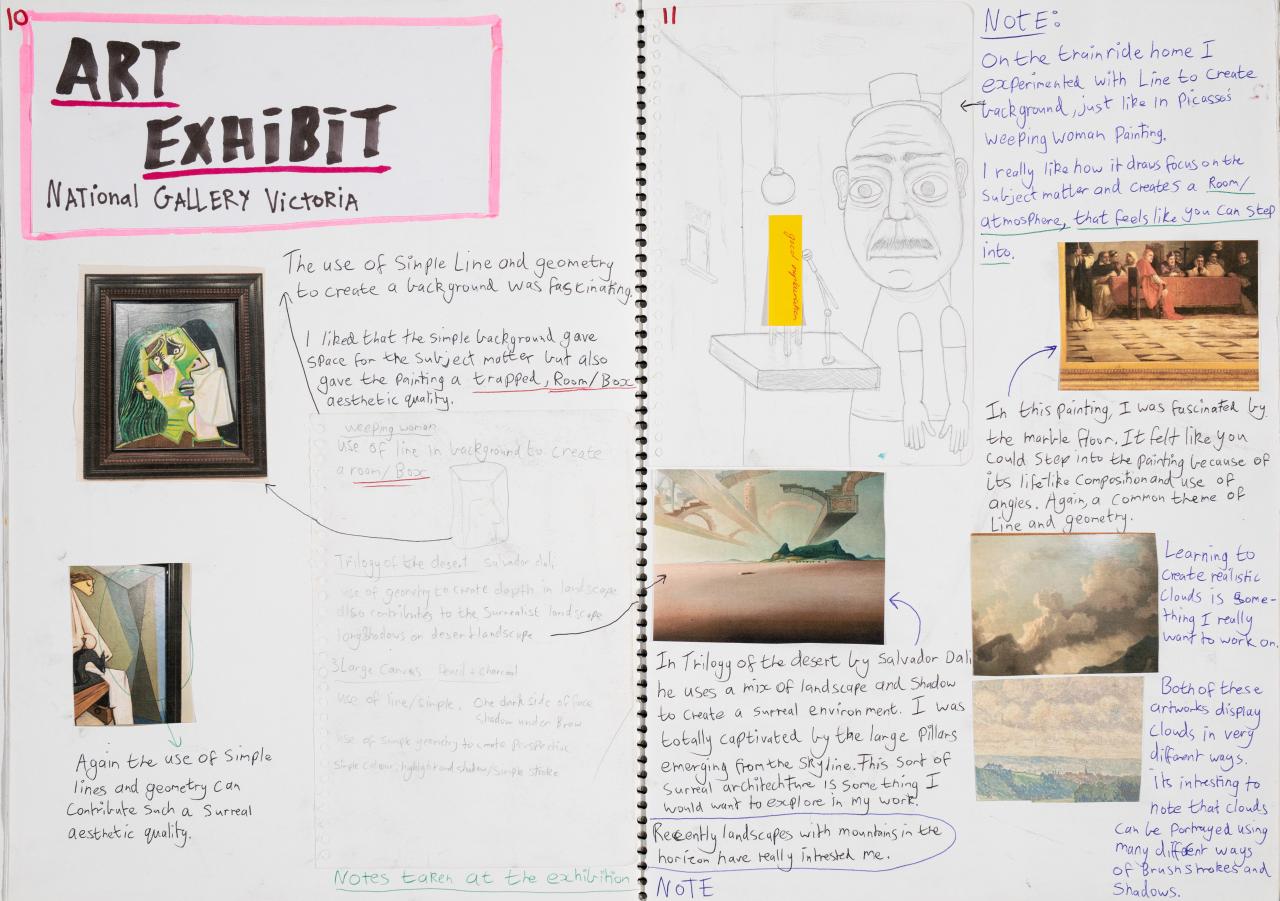 10
ART
EXHIBIT
NATional GALLERY Victoria
The use of Simple Line and geometry
to create a background was fascinating.
I liked that the simple background gave
space for the Subject matter but also
gave the painting a trapped, Room/Box
aesthetic quality.
weeping woman
use of line in background to create
a room/Box
Trilogy of the desert Salvador dali
use of geometry to create depth in landscape
also contributes to the Surrealist landscape
long shadows on desert landscape
3 Large Canvas Pencil + charcoal
use of line/simple, One dark side of face
Shadow under Brow
use of simple geometry to create perspective
Simple Colour, highlight and shadow/simple stroke
Notes taken at the exhibition
Again the use of Simple
lines and geometry can
Contribute Such a Surreal
aesthetic quality.
11
good
NOTE:
On the trainride home I
experimented with Line to Create
background, just like in Picasso's
weeping woman Painting.
I really like how it draws focus on the
Subject matter and creates a Room/
atmosphere, that feels like you can Step
into.
In this painting, I was fascinated by
the marble floor. It felt like you
Could Step into the painting because of
its lifelike Composition and use of
angies. Again, a common theme of
Line and geometry.
In Trilogy of the desert by Salvador Dali
he uses a mix of landscape and Shadow
to create a surreal environment. I was
totally captivated by the large Pillars
emerging from the Skyline. This Sort of
Surreal architechture is Some thing I
would want to explore in my work.
Recently landscapes with mountains in the
horizon have really intrested me.
NOTE
Learning to
Create realistic
Clouds is Some-
thing I really
want to work on.
Both of these
artworks display
Clouds in very
different ways.
Its intresting to
note that clouds
Can be Portrayed using
many different ways
of Brushstrokes and
Shadows.